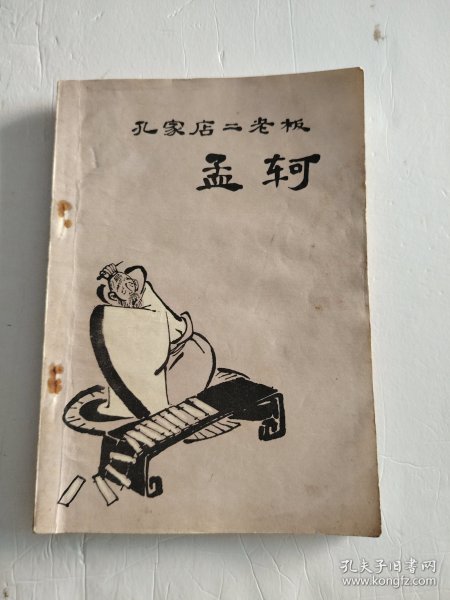 孔家店二老板
孟轲
孔夫子旧书网
www.kongfz.com